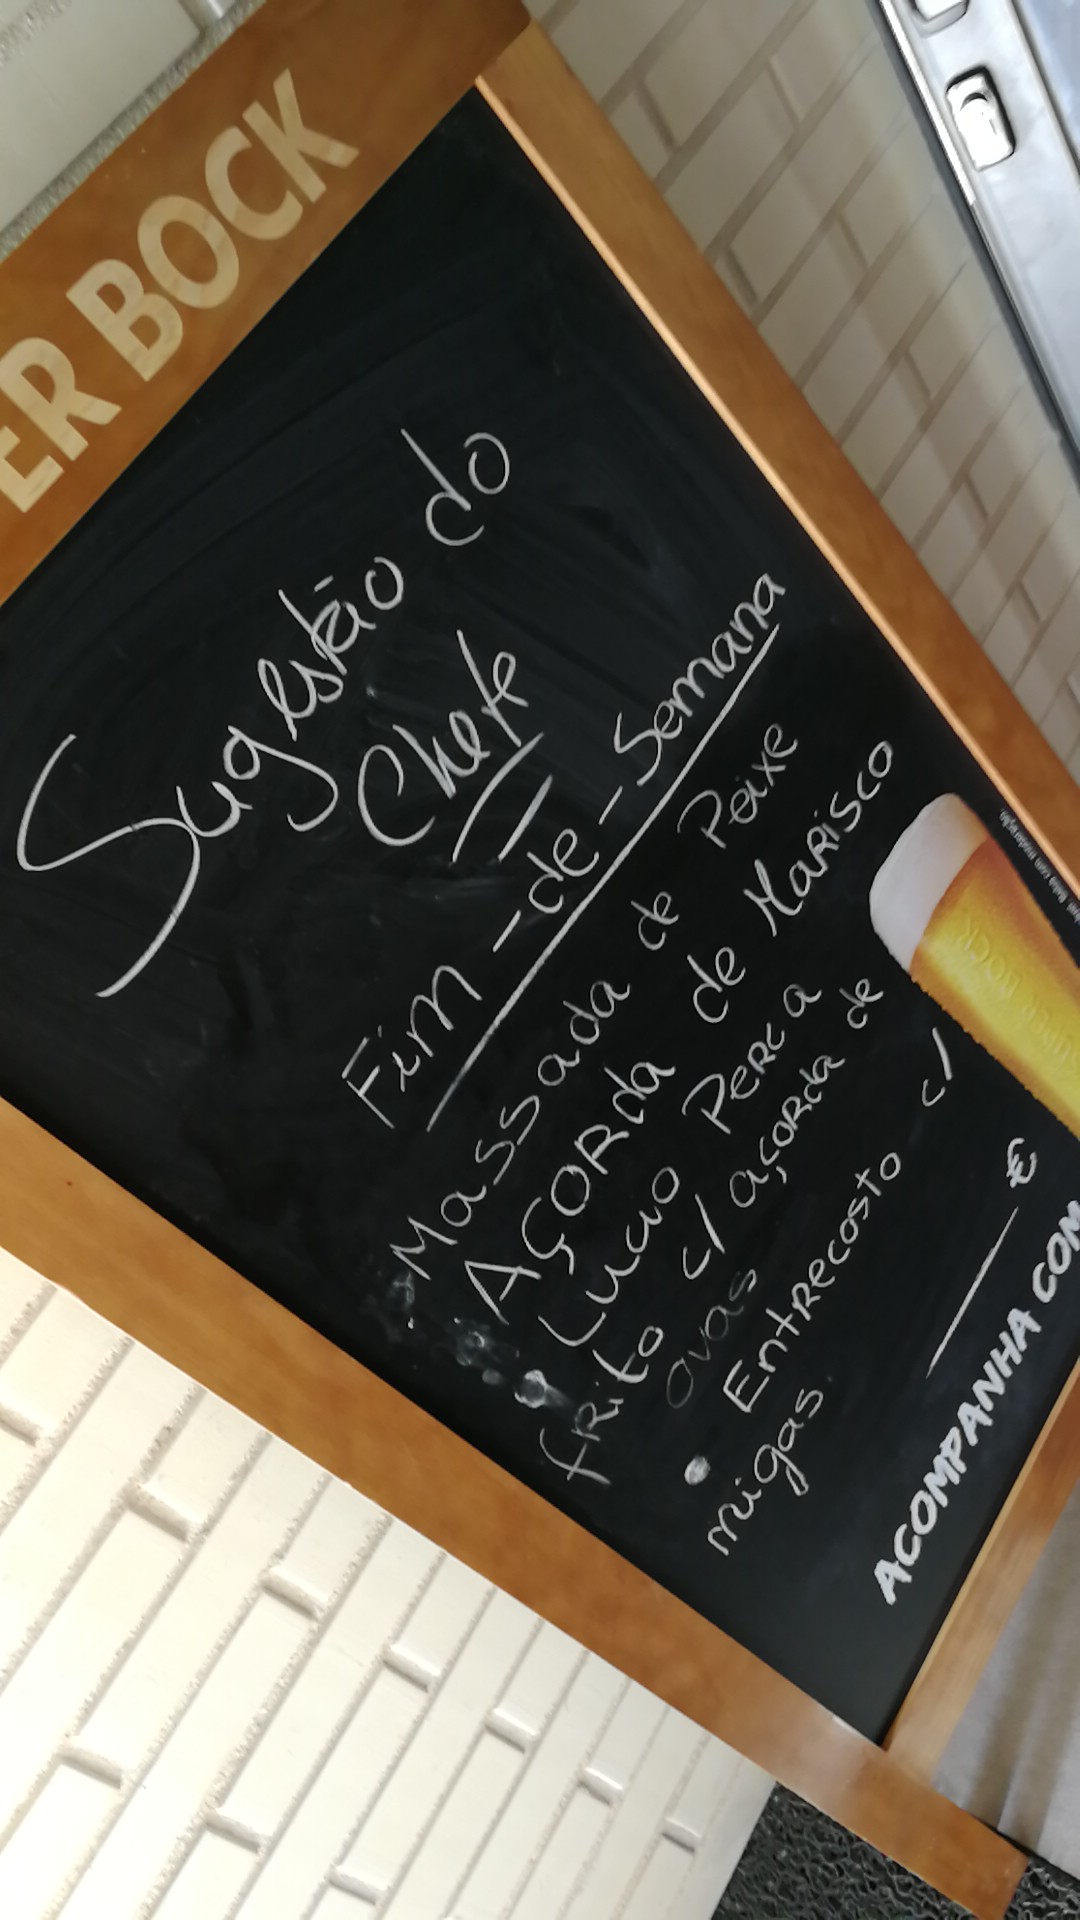 ER BOCK
Sugestão do
Chefe
Fim-de-Semana
Massada de Peixe
AÇORda de MaRisco
Lucio PERca
fRito c/ açoRda de
ovas
• EntREcosto c/
migas.
€
ACOMPANHA COM